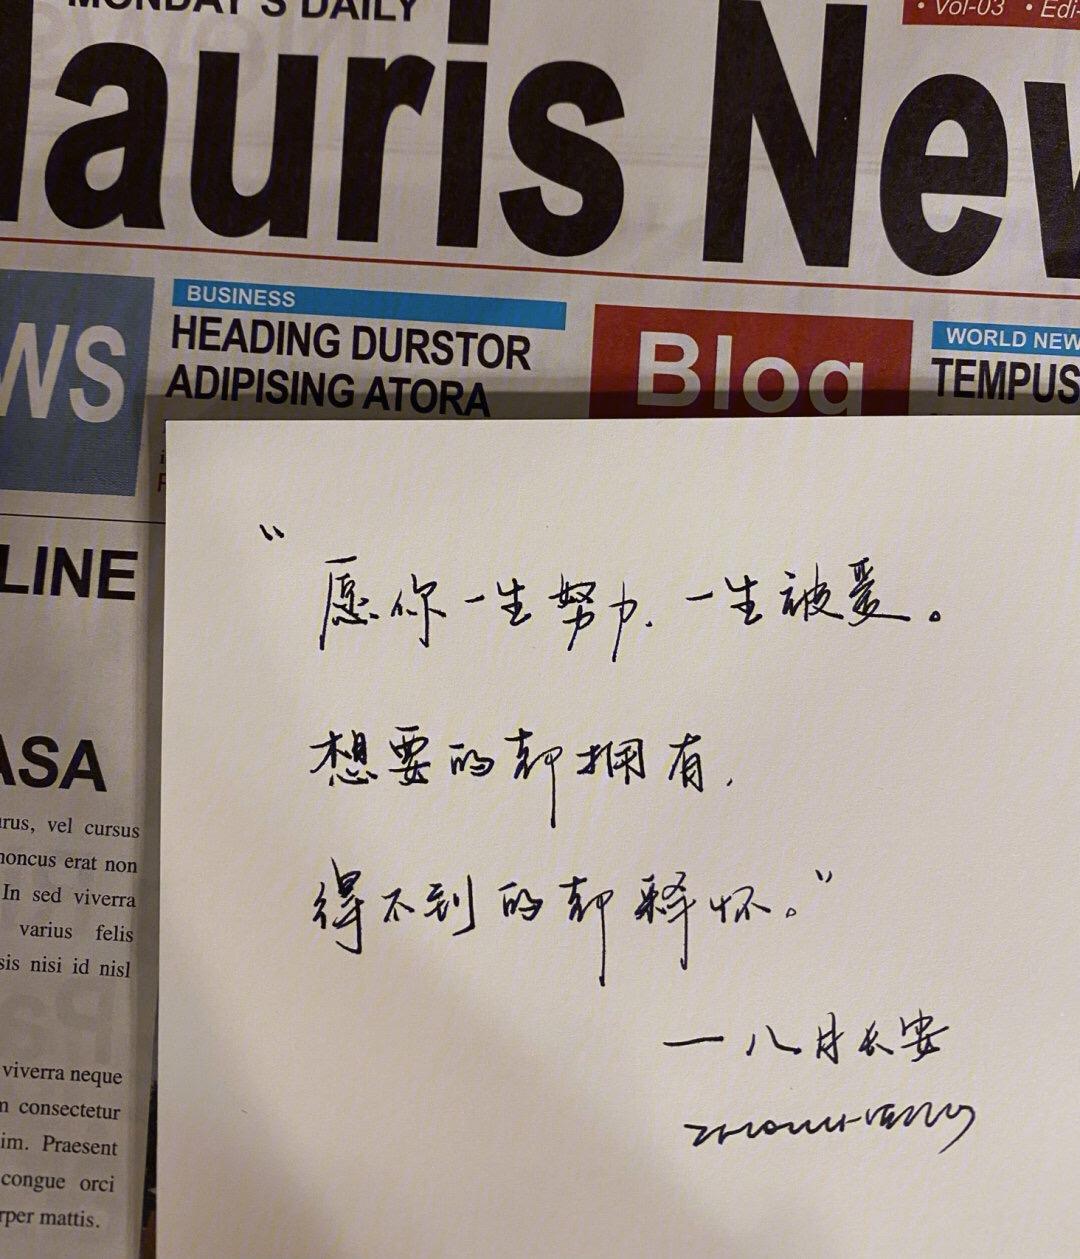 MONDAY'S DAILY
• Vol-03 • Edi-
auris New
WS
BUSINESS
HEADING DURSTOR
ADIPISING ATORA
Blog
WORLD NEW
TEMPUS
LINE
ASA
urus, vel cursus
honcus erat non
In sed viverra
varius felis
sis nisi id nisl
viverra neque
m consectetur
im. Praesent
congue orci
rper mattis.
“愿你一生努力，一生被爱。
想要的都拥有，
得不到的都释怀。”
—八月长安